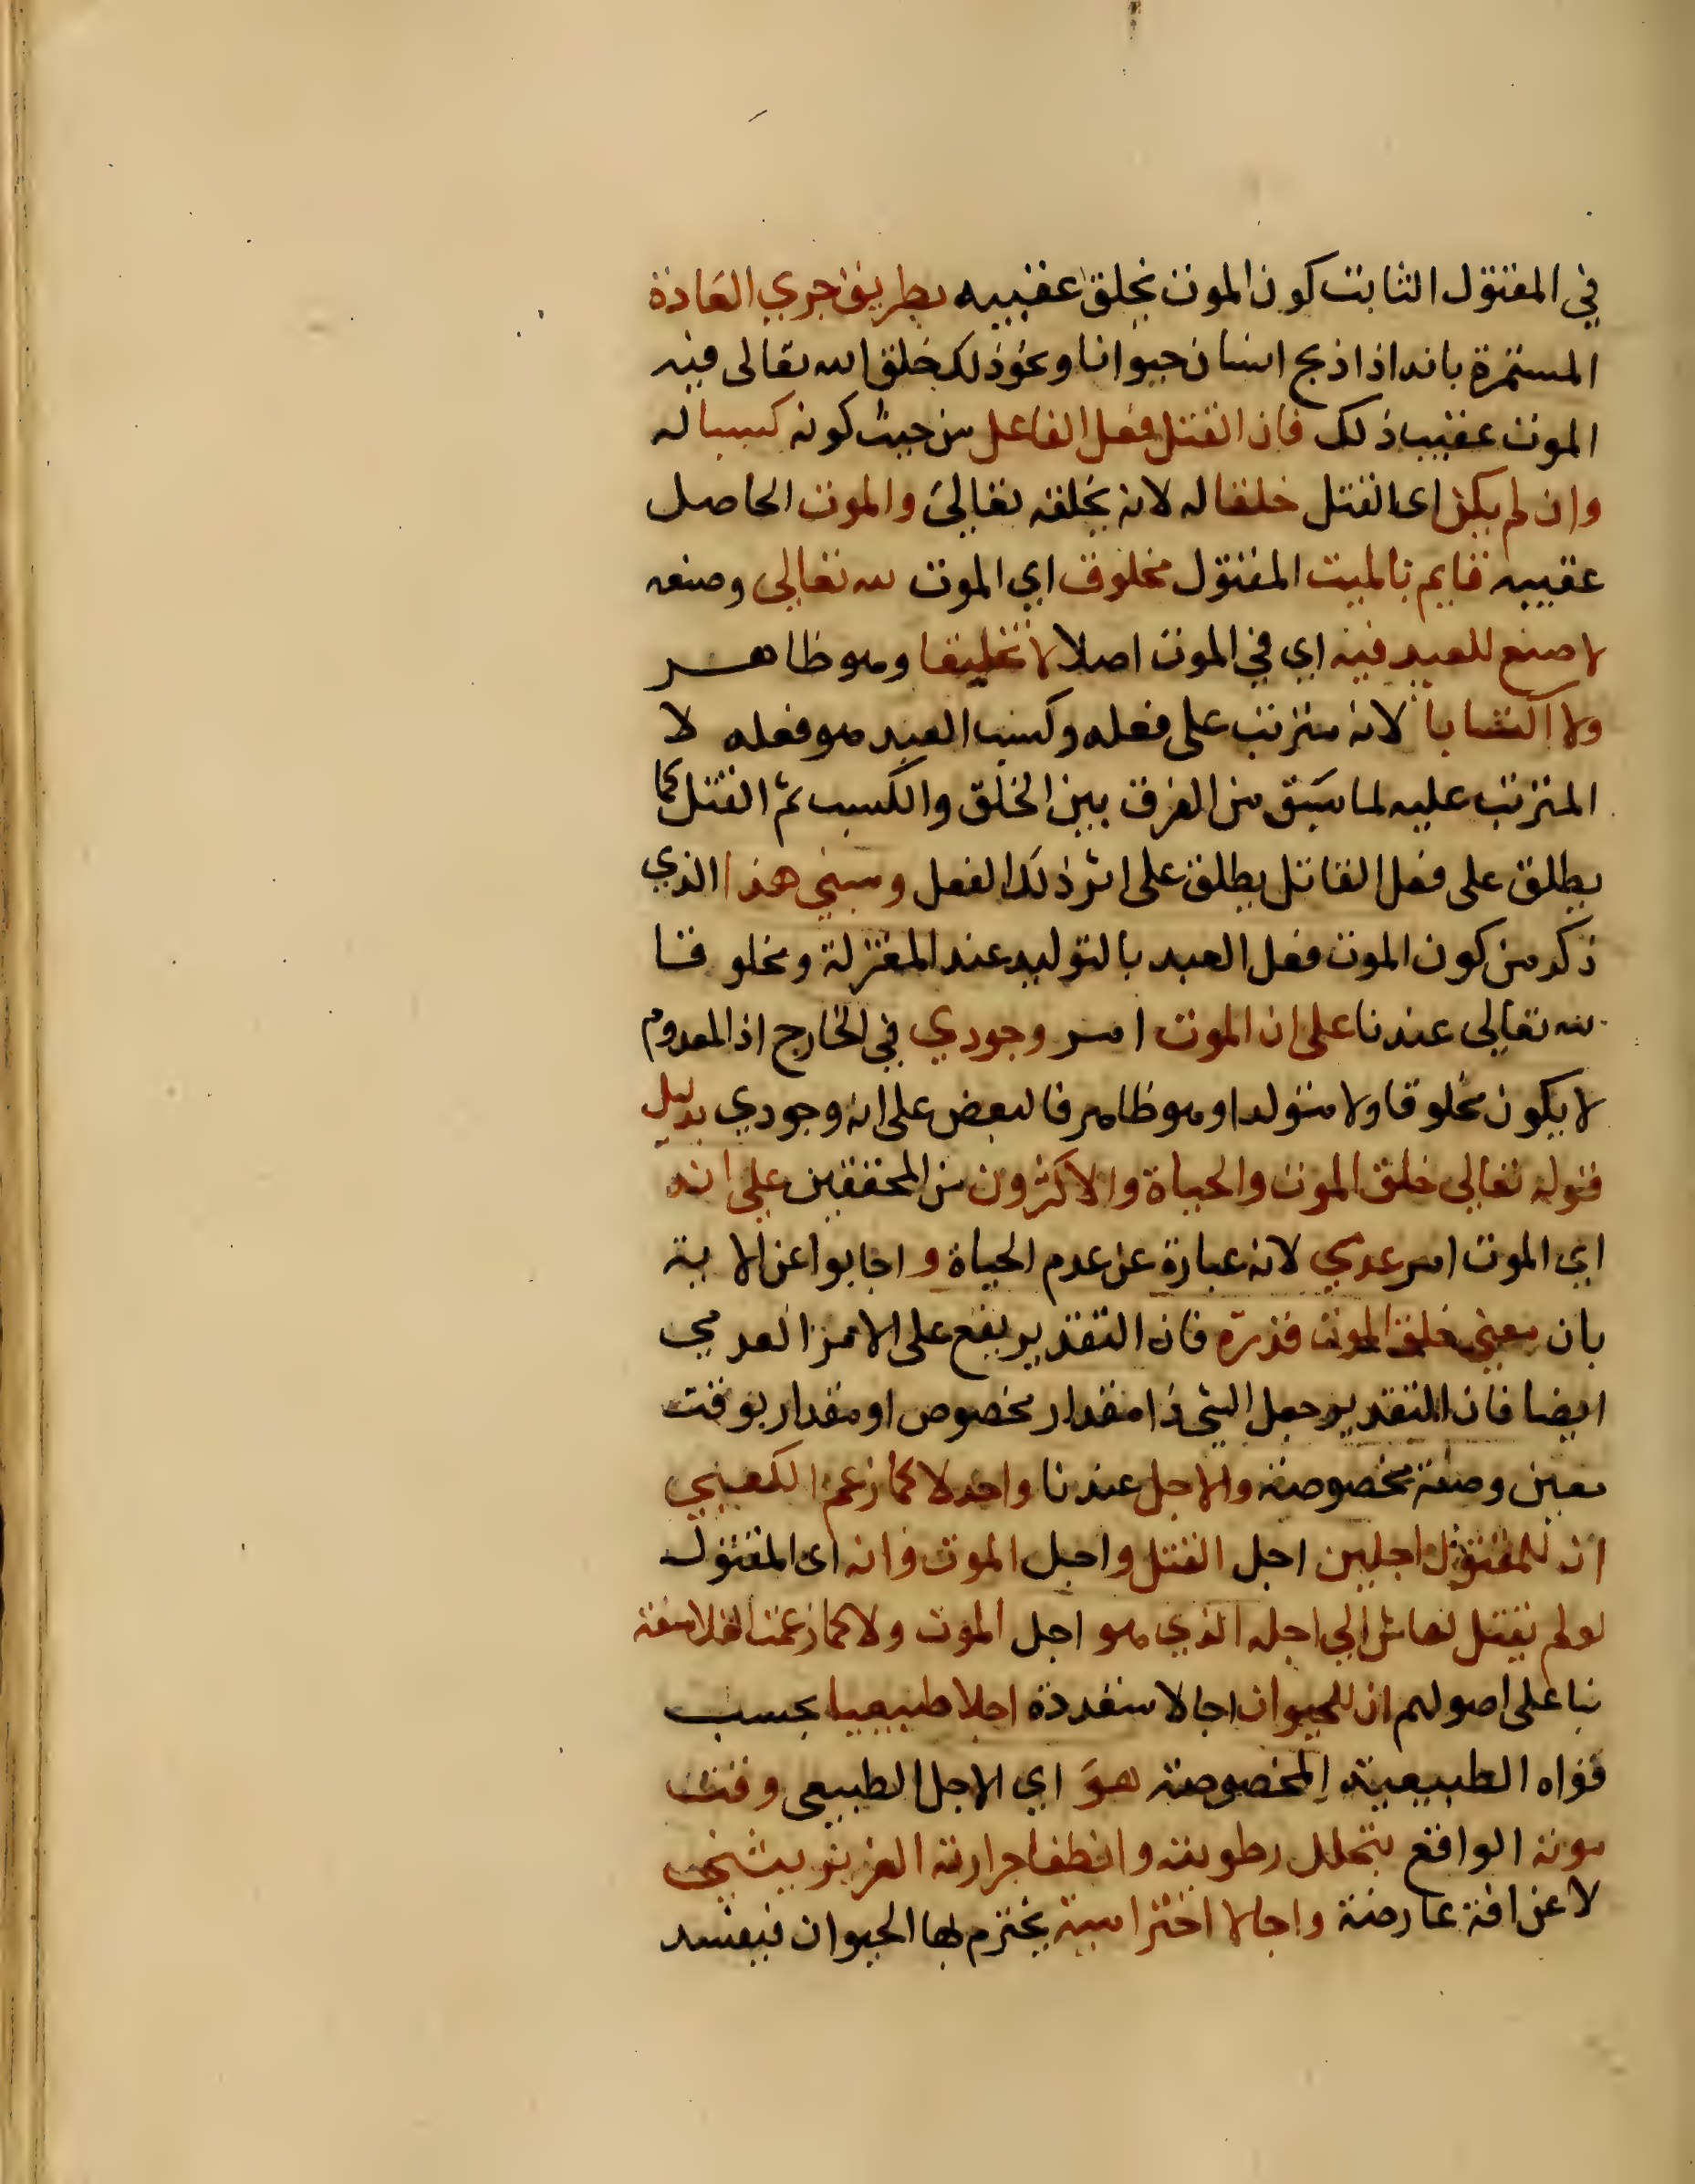 في المقتول الثابت كون الموت بخلق عقيبه بطريق جري العادة
المستمرة بانه اذا ذبح انسان حيوانا ونحو ذلك خلق الله تعالى فيه
الموت عقيب ذلك فان القتل فعل الفاعل من حيث كونه كسبا له
وان لم يكن اى القتل خلقا له لانه بخلقه تعالى والموت الحاصل
عقيبه قايم بالميت المقتول مخلوق اي الموت لله تعالى وصنعه
لا صنع للعبد فيه اي في الموت اصلا لا تخليقا وهو ظاهر
ولا اكتسابا لانه مترتب على فعله وكسب العبد هو فعله لا
المترتب عليه لما سبق من الفرق بين الخلق والكسب ثم القتل كما
يطلق على فعل القاتل يطلق على اثر ذلك الفعل ومبني هذا الذي
ذكر من كون الموت فعل العبد بالتوليد عند المعتزلة ومخلوقا
لله تعالى عندنا على ان الموت امر وجودي في الخارج اذ المعدوم
لا يكون مخلوقا ولا متولدا وهو ظاهر فالبعض على انه وجودي بدليل
قوله تعالى خلق الموت والحياة والاكثرون من المحققين على انه
اي الموت امر عدمي لانه عبارة عن عدم الحياة واجابوا عن الاية
بان معني خلق الموت قدره فان التقدير يقع على الامر العدمي
ايضا فان التقدير جعل الشي ذا مقدار مخصوص او مقدار بوقت
معين وصفة مخصوصة والاجل عندنا واحد لا كما زعم الكعبي
ان للمقتول اجلين اجل القتل واجل الموت وانه اى المقتول
لو لم يقتل لعاش الي اجله الذي هو اجل الموت ولا كما زعمت الفلاسفة
بنا على اصولهم ان للحيوان اجالا متعددة اجلا طبيعيا بحسب
قواه الطبيعية المخصوصة هو اي الاجل الطبيعى وقت
موته الواقع بتحلل رطوبته وانطفا حرارته
لا عن افة عارضة واجالا اخترامية يخترم بها الحيوان فيفسد